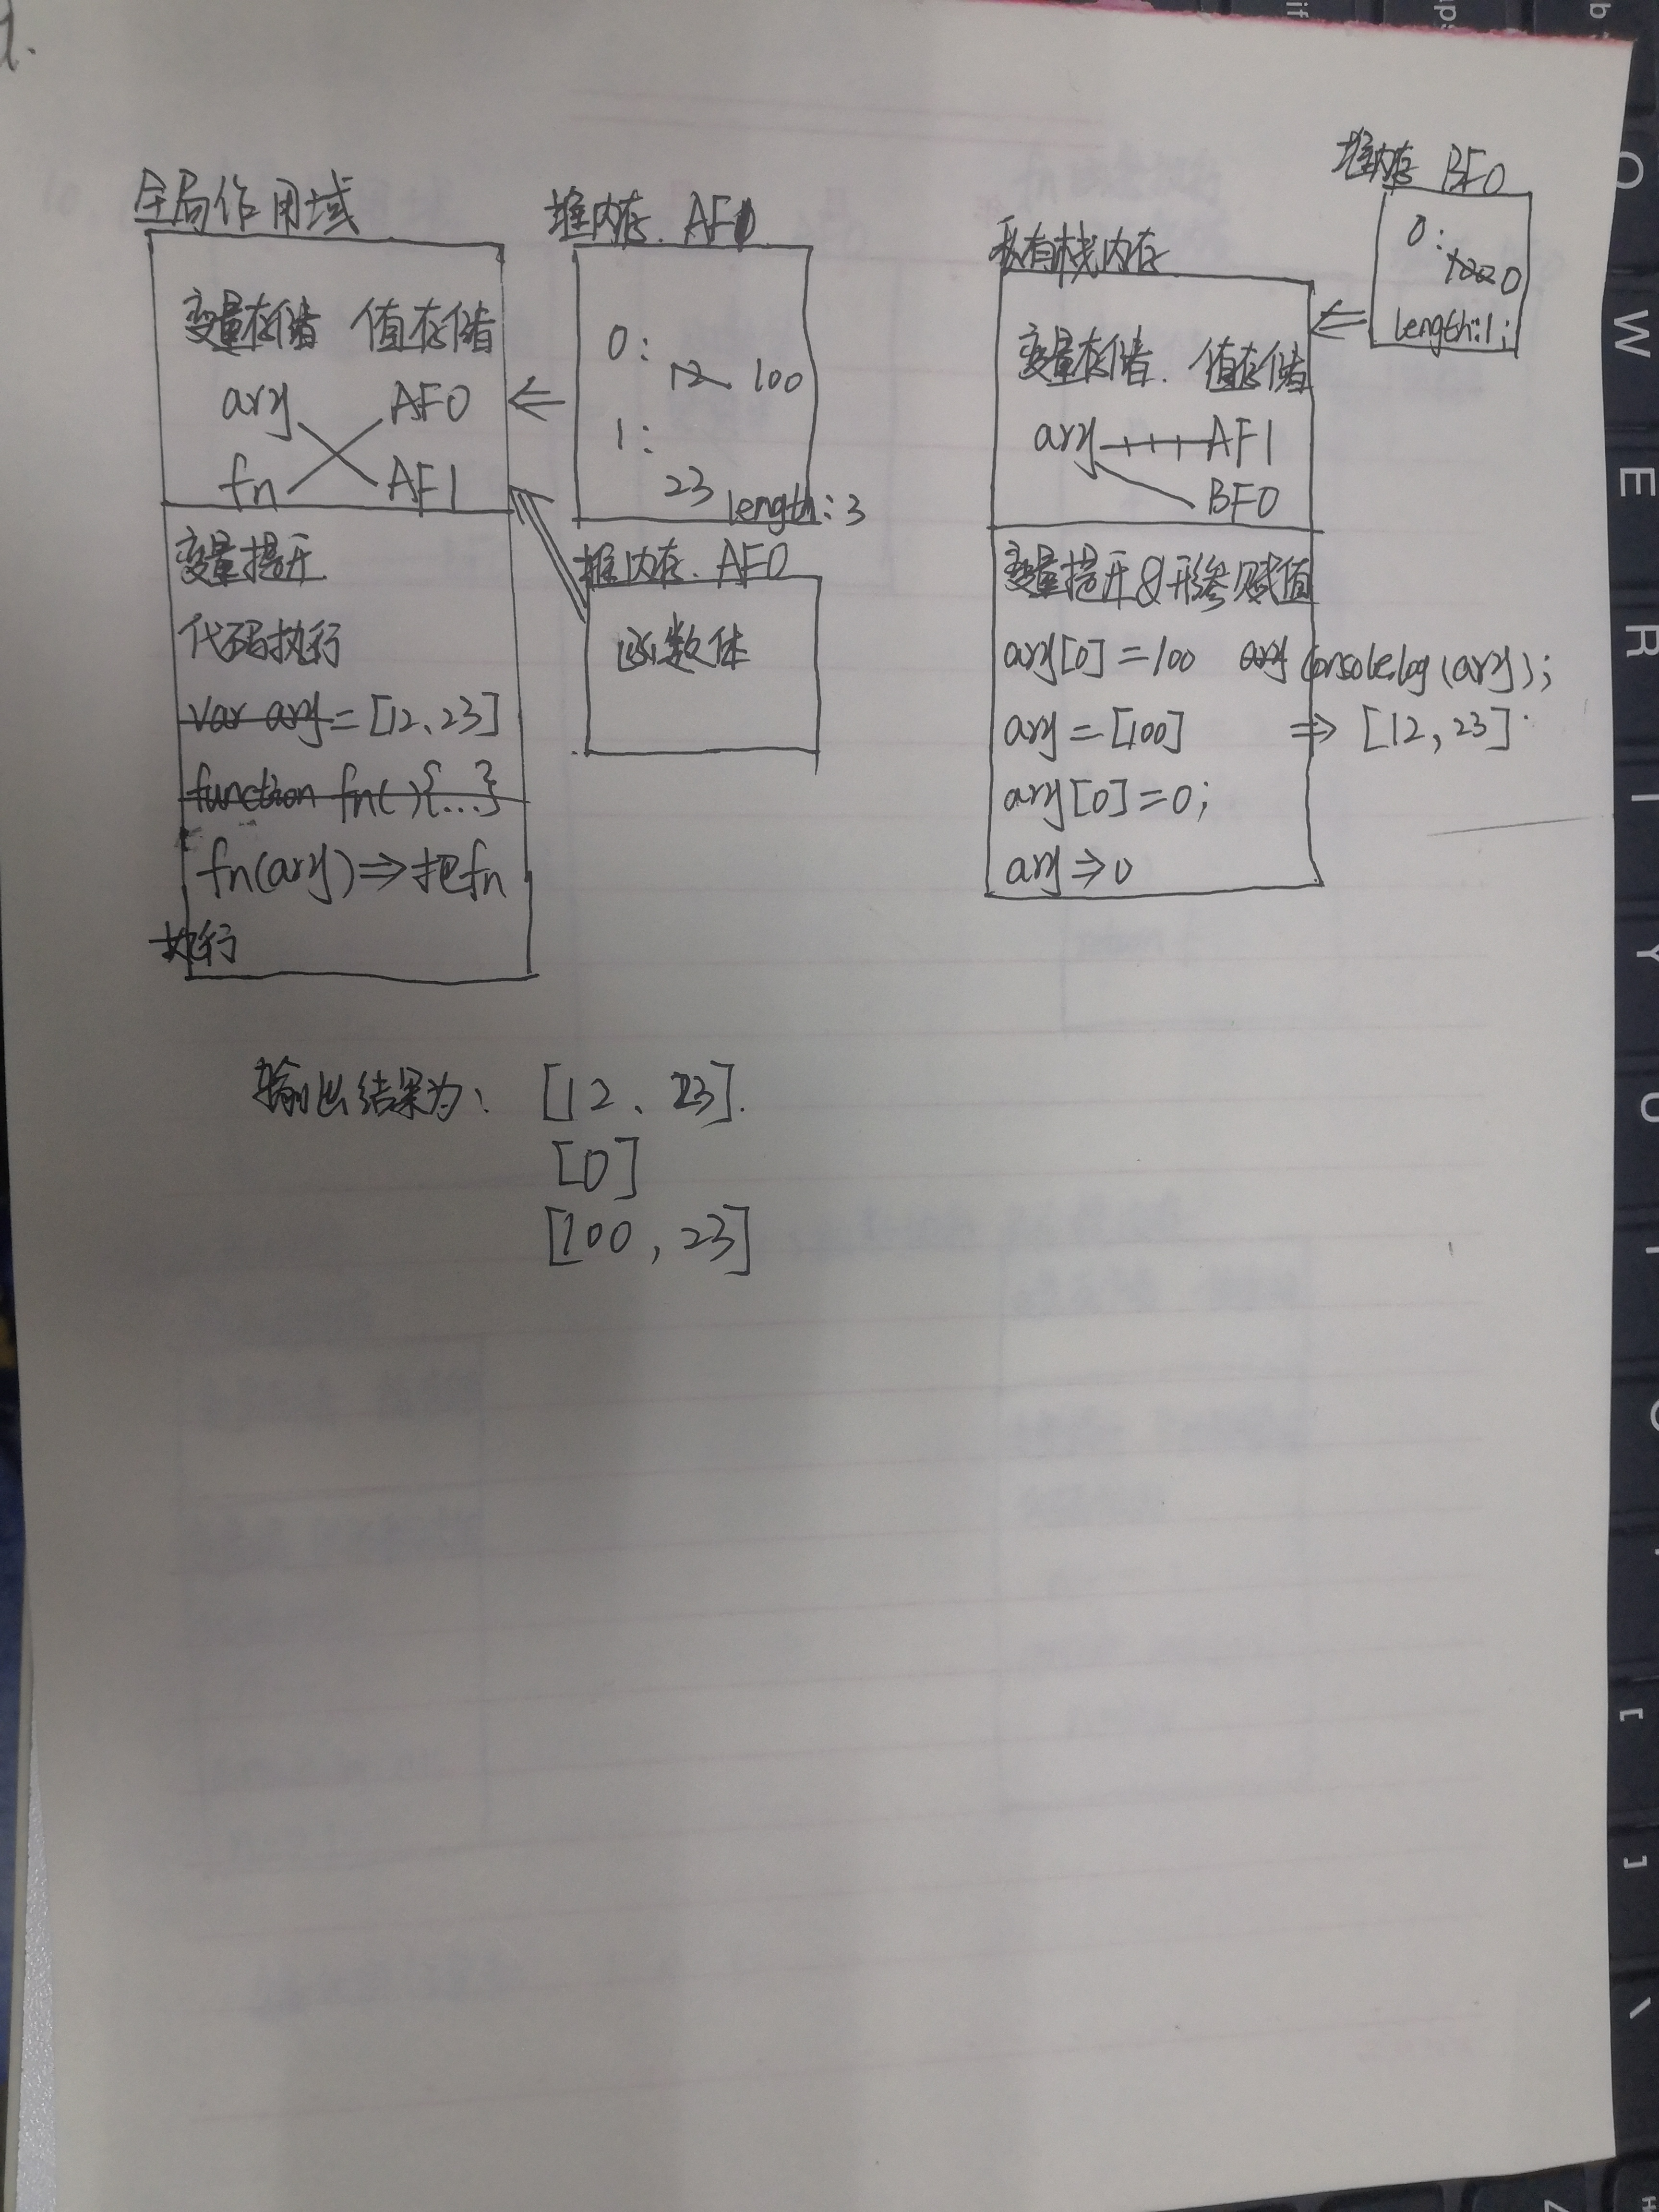 1.
全局作用域
变量存储 值存储
ary AF0
fn AF1
变量提升
代码执行
var ary = [12、23]
function fn(){...}
fn(ary)⇒把fn
执行
堆内存. AF1
0:
12 100
1:
23
length:3
堆内存. AF0
函数体
私有栈内存
变量存储. 值存储
ary AF1
BF0
变量提升&形参赋值
ary[0]=100 ary console.log(ary);
ary=[100] ⇒ [12,23]
ary[0]=0;
ary⇒0
堆内存 BF0
0:
100 0
length:1;
输出结果为: [12、23].
[0]
[100,23]
if
ups
b
O
W
E
R
T
Y
U
I
O
[
]
\
H